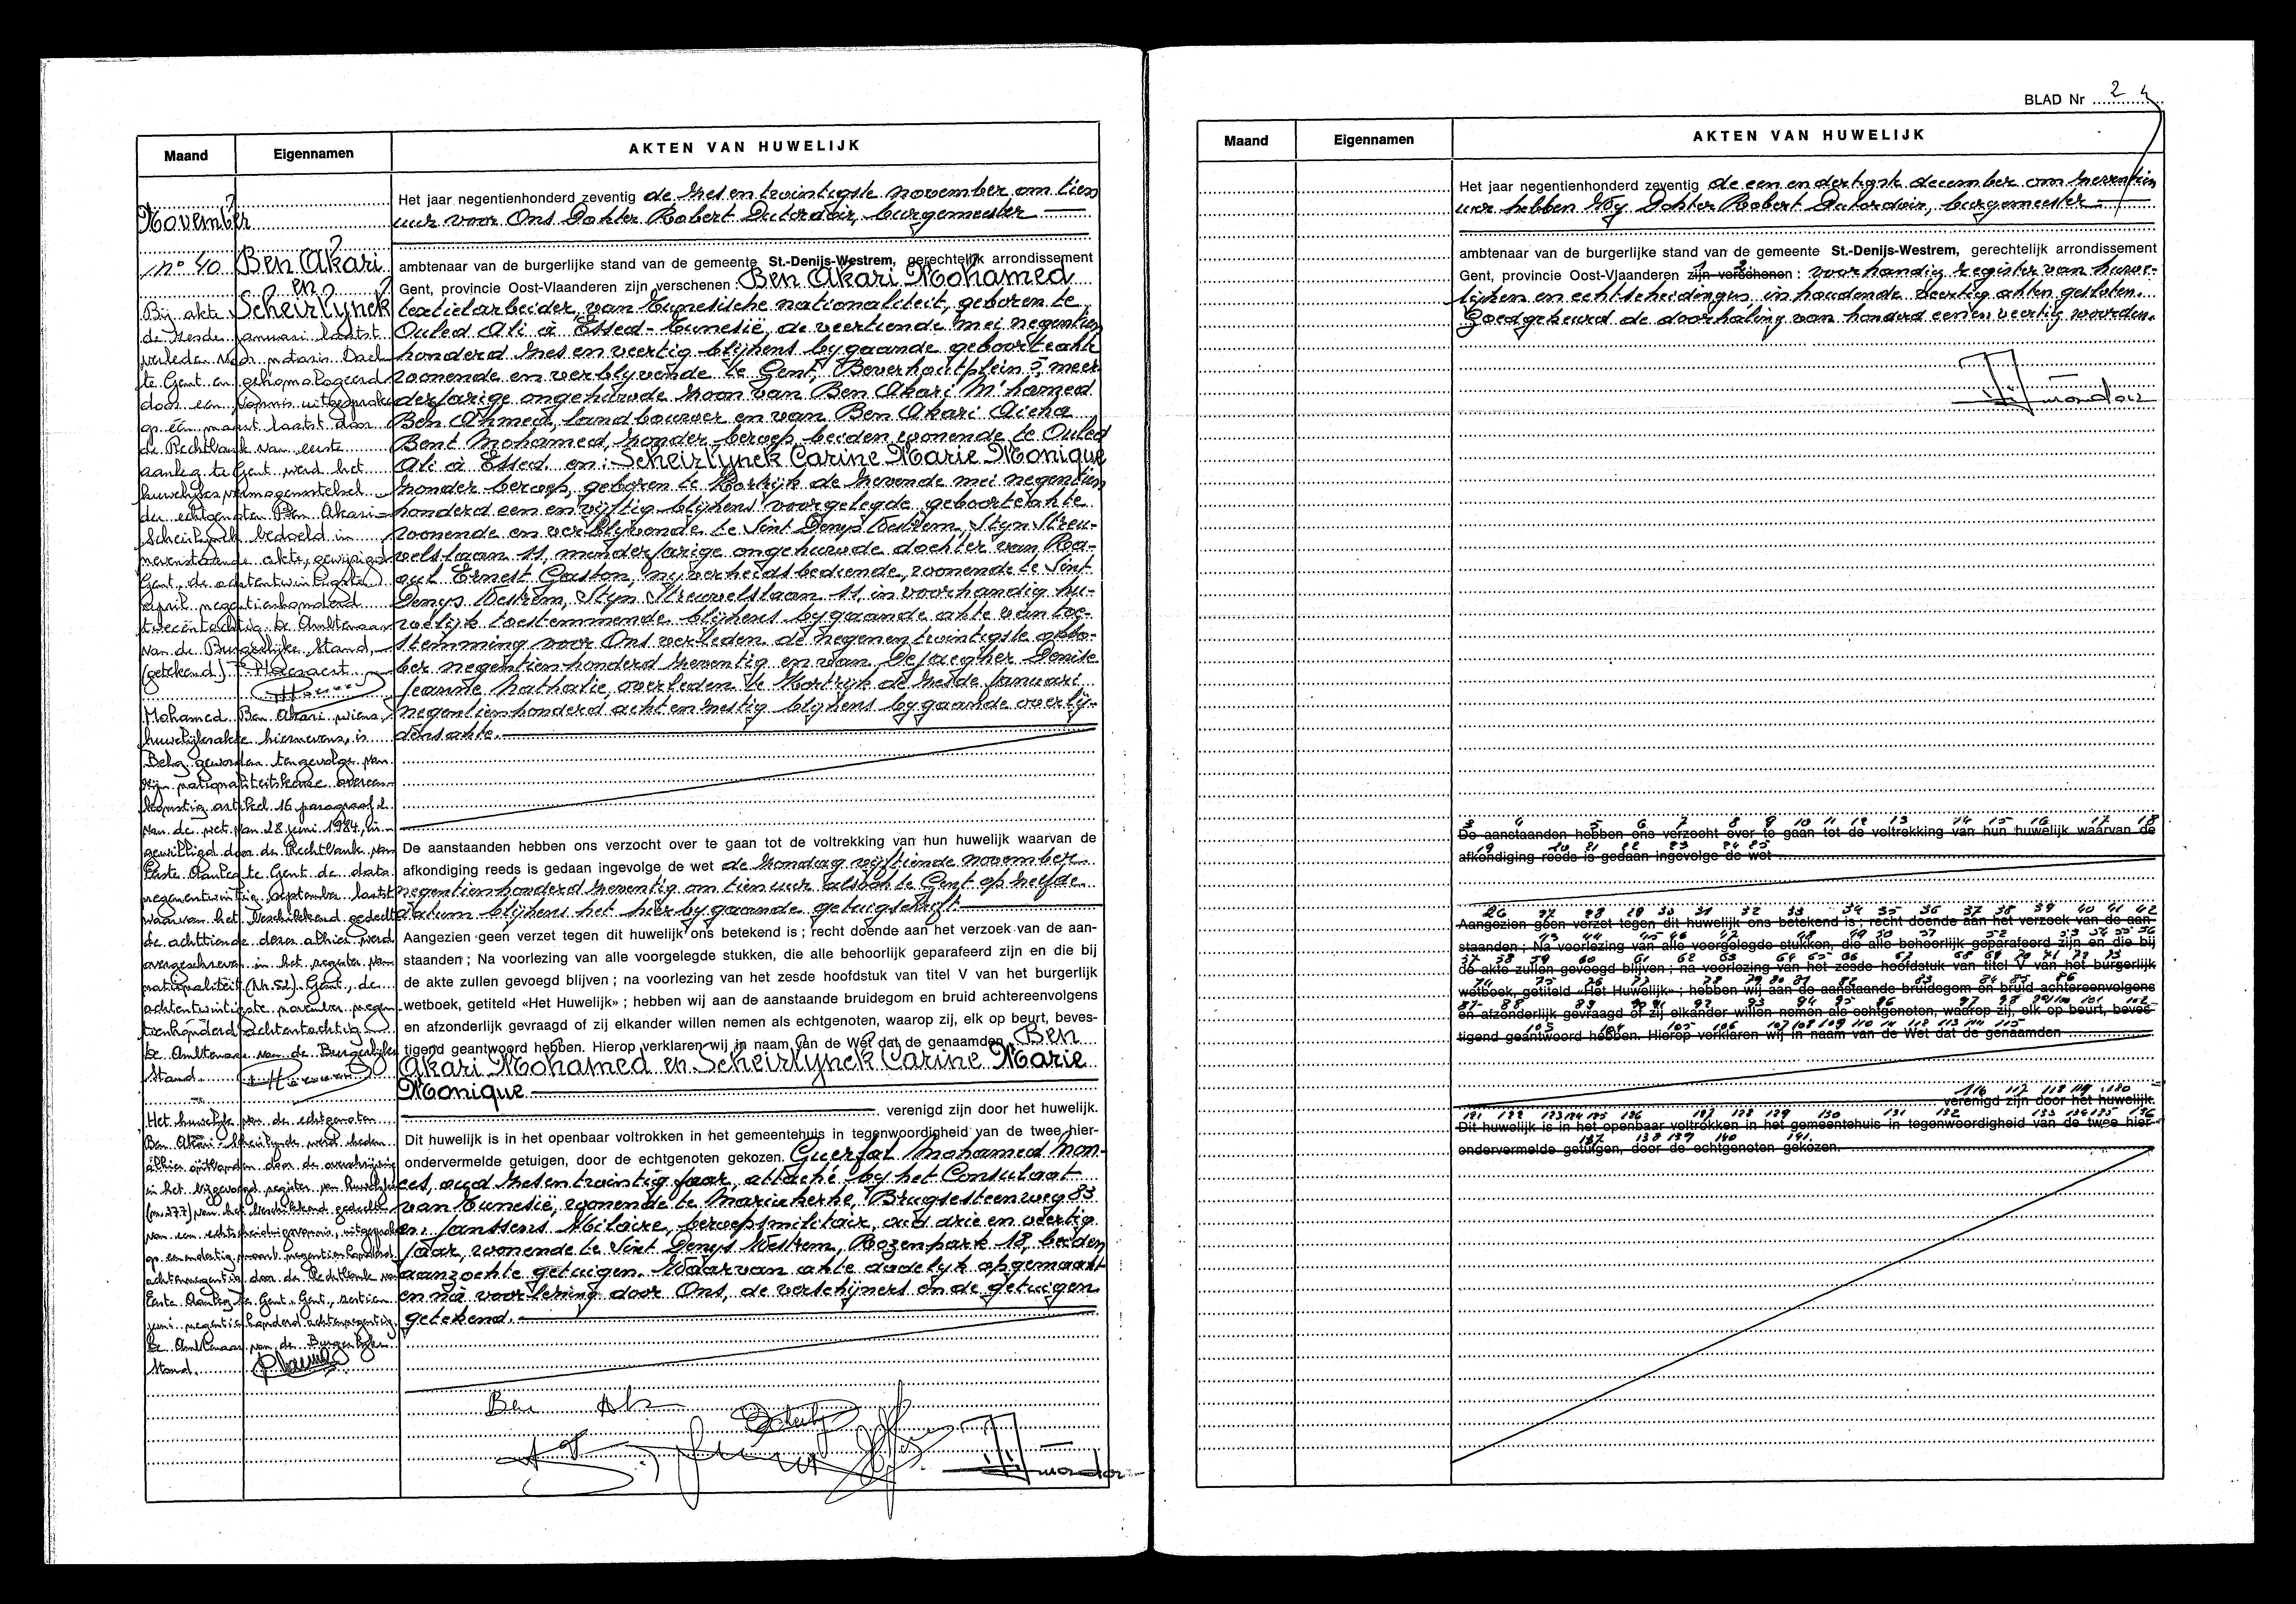 Maand
Eigennamen
AKTEN VAN HUWELIJK
November
n° 40
Ben Akari
en
Scheirlynck
Bij akte
de zesde januari laatst
verleden voor notaris
te Gent en gehomologeerd
door een vonnis uitgesproken
op één maart laatst door
de Rechtbank van eerste
aanleg te Gent werd het
huwelijksvermogensstelsel
der echtgenoten Ben Akari-
Scheirlynck bedoeld in
nevenstaande akte, gewijzigd
Gent, de achtentwintigste
april negentienhonderd
tweeëntachtig. De Ambtenaar
van de Burgerlijke Stand,
(getekend)
Mohamed Ben Akari wiens
huwelijksakte hiernevens, is
Belg geworden tengevolge van
zijn nationaliteitskeuze overeen-
komstig artikel 16 paragraaf 2
van de wet van 28 juni 1984, in-
gewilligd door de Rechtbank van
Eerste Aanleg te Gent de dato
negenentwintig september laatst
waarvan het beschikkend gedeelte
de achttiende dezer alhier werd
overgeschreven in het register van
nationaliteit (Nr. 52). Gent, de
achtentwintigste november negen-
tienhonderd achtentachtig
De Ambtenaar van de Burgerlijke
Stand.
Het huwelijk van de echtgenoten
Ben Akari - Scheirlynck werd heden
alhier ontbonden door de overschrijving
in het bijgevoegd register van huwelijken
(nr. 377) van het beschikkend gedeelte
van een echtscheidingsvonnis, uitgesproken
op eenendertig maart negentienhonderd
achtennegentig door de Rechtbank van
Eerste Aanleg te Gent. Gent, zestien
juni negentienhonderd achtennegentig.
De Ambtenaar van de Burgerlijke
Stand.
Het jaar negentienhonderd zeventig de zesentwintigste november om tien
uur voor Ons Dokter Robert Delordoir, burgemeester
ambtenaar van de burgerlijke stand van de gemeente St.-Denijs-Westrem, gerechtelijk arrondissement
Gent, provincie Oost-Vlaanderen zijn verschenen Ben Akari Mohamed
textielarbeider, van Tunesische nationaliteit, geboren te
Ouled Ali à Essed-Tunesië, de veertiende mei negentien
honderd zesenveertig blijkens bygaande geboorteakte
wonende en verblyvende te Gent, Beverhoutplein 5, meer
derjarige ongehuwde zoon van Ben Akari M'hamed
Ben Ahmed, landbouwer en van Ben Akari Aicha
Bent Mohamed, zonder beroep, beiden wonende te Ouled
Ali à Essed en: Scheirlynck Carine Marie Monique
zonder beroep, geboren te Kortrijk de zevende mei negentien
honderd eenenvijftig blijkens voorgelegde geboorteakte
wonende en verblijvende te Sint Denys Westrem, Styn Streu-
velslaan 11, minderjarige ongehuwde dochter van Ra-
oul Ernest Gaston, nijverheidsbediende, wonende te Sint
Denys Westrem, Styn Streuvelslaan 11, in voorhandig hu-
welijk toestemmende blijkens bygaande akte van toe-
stemming voor Ons verleden de negenentwintigste okto-
ber negentienhonderd zeventig en van Dejaegher Denise
Jeanne Nathalie, overleden te Kortrijk de zesde januari
negentienhonderd achtenzestig blijkens bygaande overlij-
densakte.
De aanstaanden hebben ons verzocht over te gaan tot de voltrekking van hun huwelijk waarvan de
afkondiging reeds is gedaan ingevolge de wet de zondag vijftiende november
negentienhonderd zeventig om tien uur alsook te Gent op zelfde
datum blijkens het hierbygaande getuigschrift.
Aangezien geen verzet tegen dit huwelijk ons betekend is ; recht doende aan het verzoek van de aan-
staanden ; Na voorlezing van alle voorgelegde stukken, die alle behoorlijk geparafeerd zijn en die bij
de akte zullen gevoegd blijven ; na voorlezing van het zesde hoofdstuk van titel V van het burgerlijk
wetboek, getiteld «Het Huwelijk» ; hebben wij aan de aanstaande bruidegom en bruid achtereenvolgens
en afzonderlijk gevraagd of zij elkander willen nemen als echtgenoten, waarop zij, elk op beurt, beves-
tigend geantwoord hebben. Hierop verklaren wij in naam van de Wet dat de genaamden Ben
Akari Mohamed en Scheirlynck Carine Marie
Monique
verenigd zijn door het huwelijk.
Dit huwelijk is in het openbaar voltrokken in het gemeentehuis in tegenwoordigheid van de twee hier-
ondervermelde getuigen, door de echtgenoten gekozen. Guerfal Mohamed Mon-
ces, oud zesentwintig jaar, attaché by het Consulaat
van Tunesië, wonende te Mariakerke, Brugsesteenweg 83
en: Janssens Hilaire, beroepsmilitair, oud drie en veertig
jaar, wonende te Sint Denys Westrem, Rozenpark 18, beiden
aanzochte getuigen. Waarvan akte dadelyk opgemaakt
en na voorlezing door Ons, de verschijners en de getuigen
getekend.
Ben Ak
BLAD Nr 24
Maand
Eigennamen
AKTEN VAN HUWELIJK
Het jaar negentienhonderd zeventig de een en dertigste december om zeventien
uur hebben Wij Dokter Robert Delordoir, burgemeester
ambtenaar van de burgerlijke stand van de gemeente St.-Denijs-Westrem, gerechtelijk arrondissement
Gent, provincie Oost-Vlaanderen zijn verschenen : voorhandig register van huwe-
lijken en echtscheidingen, inhoudende veertig akten gesloten.
Goedgekeurd de doorhaling van honderd eenen veertig woorden.
De aanstaanden hebben ons verzocht over te gaan tot de voltrekking van hun huwelijk waarvan de
afkondiging reeds is gedaan ingevolge de wet
Aangezien geen verzet tegen dit huwelijk ons betekend is ; recht doende aan het verzoek van de aan-
staanden ; Na voorlezing van alle voorgelegde stukken, die alle behoorlijk geparafeerd zijn en die bij
de akte zullen gevoegd blijven ; na voorlezing van het zesde hoofdstuk van titel V van het burgerlijk
wetboek, getiteld «Het Huwelijk» ; hebben wij aan de aanstaande bruidegom en bruid achtereenvolgens
en afzonderlijk gevraagd of zij elkander willen nemen als echtgenoten, waarop zij, elk op beurt, beves-
tigend geantwoord hebben. Hierop verklaren wij in naam van de Wet dat de genaamden
verenigd zijn door het huwelijk.
Dit huwelijk is in het openbaar voltrokken in het gemeentehuis in tegenwoordigheid van de twee hier-
ondervermelde getuigen, door de echtgenoten gekozen.